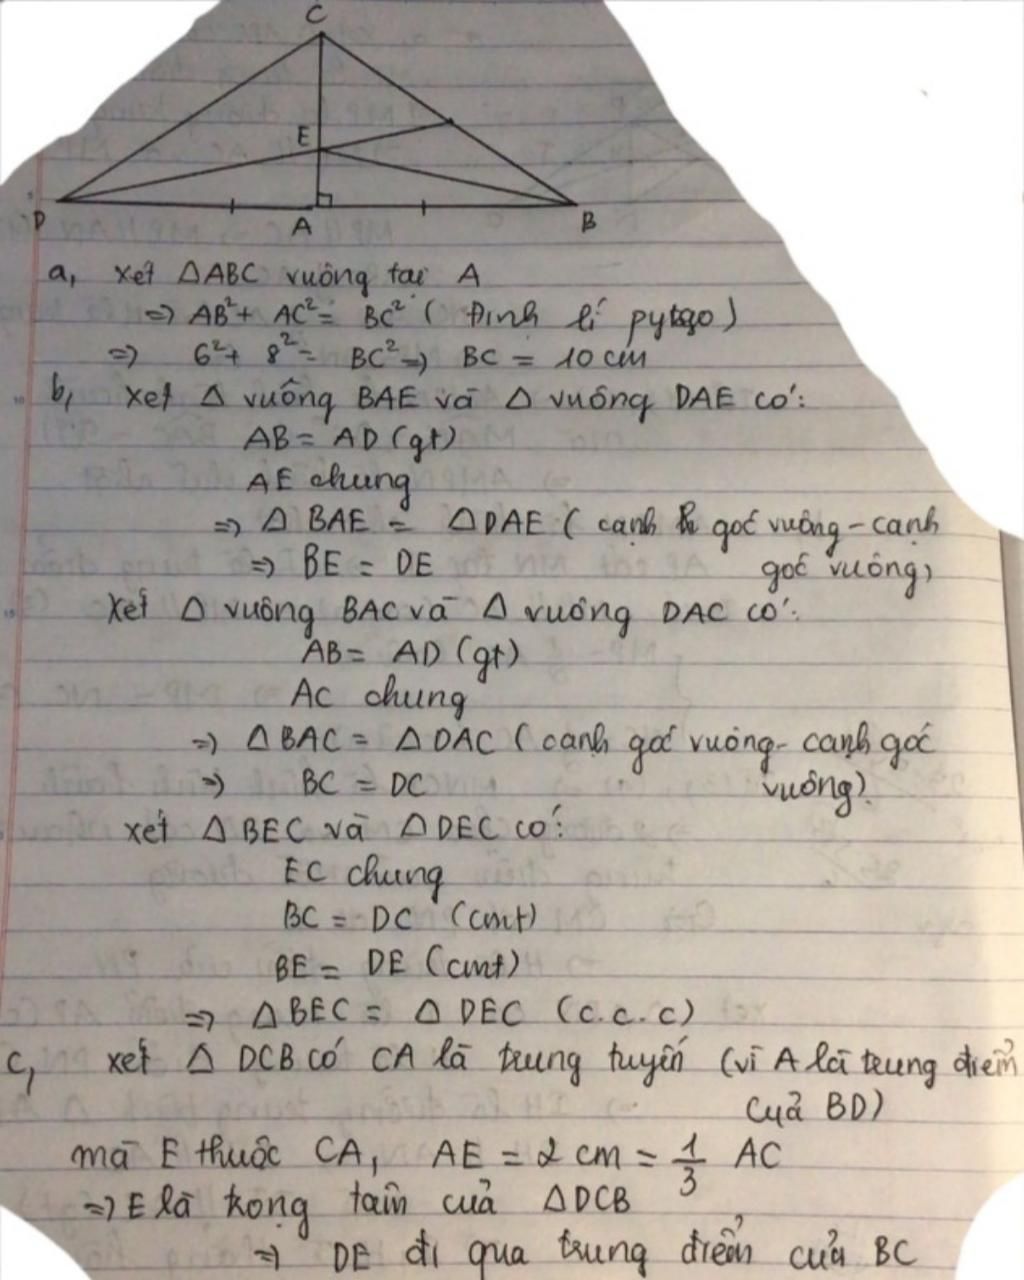 C
E
D
A
B
a, xét △ABC vuông tại A
=> AB² + AC² = BC² (Định lí pytago)
=> 6² + 8² = BC² => BC = 10 cm
b, xét △ vuông BAE và △ vuông DAE có:
AB = AD (gt)
AE chung
=> △ BAE = △DAE ( cạnh góc vuông - cạnh
=> BE = DE góc vuông)
Xét △ vuông BAC và △ vuông DAC có:
AB = AD (gt)
AC chung
=> △BAC = △DAC ( cạnh góc vuông - cạnh góc
=> BC = DC vuông).
xét △ BEC và △DEC có:
EC chung
BC = DC (cmt)
BE = DE (cmt)
=> △BEC = △ DEC (c.c.c)
c, xét △ DCB có CA là trung tuyến (vì A là trung điểm
của BD)
mà E thuộc CA, AE = 2 cm = 1/3 AC
=> E là trọng tâm của △DCB
=> DE đi qua trung điểm của BC